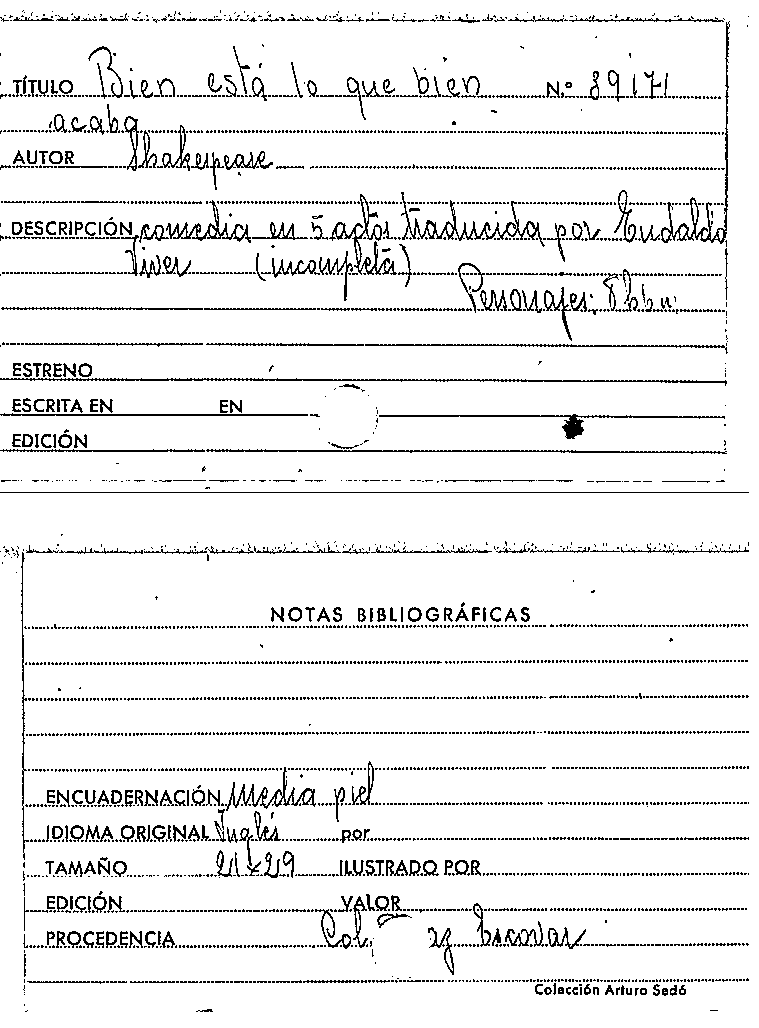 TÍTULO Bien está lo que bien N.º 89171
acaba
AUTOR Shakespeare
DESCRIPCIÓN comedia en 5 actos traducida por Eudaldo
Viver (incompleta)
Personajes:
ESTRENO
ESCRITA EN EN
EDICIÓN
NOTAS BIBLIOGRÁFICAS
ENCUADERNACIÓN Media piel
IDIOMA ORIGINAL Inglés por
TAMAÑO 21x29 ILUSTRADO POR
EDICIÓN VALOR
PROCEDENCIA Col. Escovar
Colección Arturo Sedó